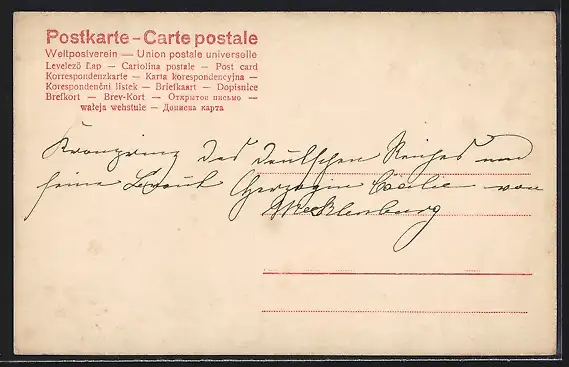 Postkarte – Carte postale
Weltpostverein — Union postale universelle
Levelező Lap — Cartolina postale — Post card
Korrespondenzkarte — Karta korespondencyjna —
Korespondenční lístek — Briefkaart — Dopisnice
Brefkort — Brev-Kort — Открытое письмо —
wateja wehstule — Дописна карта
Kronprinz des Deutschen Reiches und
seine Braut Herzogin Cäcilie von
Mecklenburg